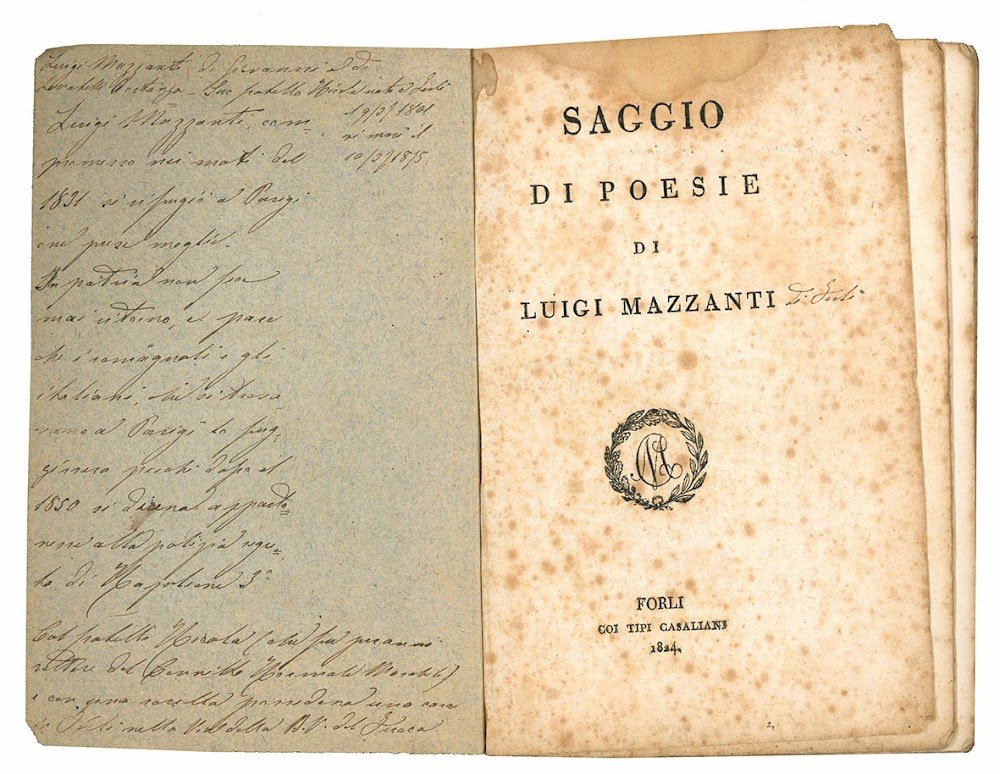 Luigi Mazzanti di Giovanni e di
Costanza - Suo fratello Nicola nato a Forlì
il 9/5/1801
si morì il
10/5/1875
Luigi Mazzanti, com=
promesso nei moti del
1831 si rifugiò a Parigi
ove prese moglie.
In patria non fece
mai ritorno, e pare
che i romagnoli e gli
italiani, che si trova
vano a Parigi lo fug=
gissero perchè dopo il
1850 si diceva apparte=
nesse alla polizia segre=
ta di Napoleone 3º
Col fratello Nicola (che fu per anni
rettore del Convitto Normale Maschile)
e con una sorella possedeva una casa
in Forlì nella Via della B. V. del Fuoco
SAGGIO
DI POESIE
DI
LUIGI MAZZANTI di Forlì
FORLI
COI TIPI CASALIANI
1824.
2